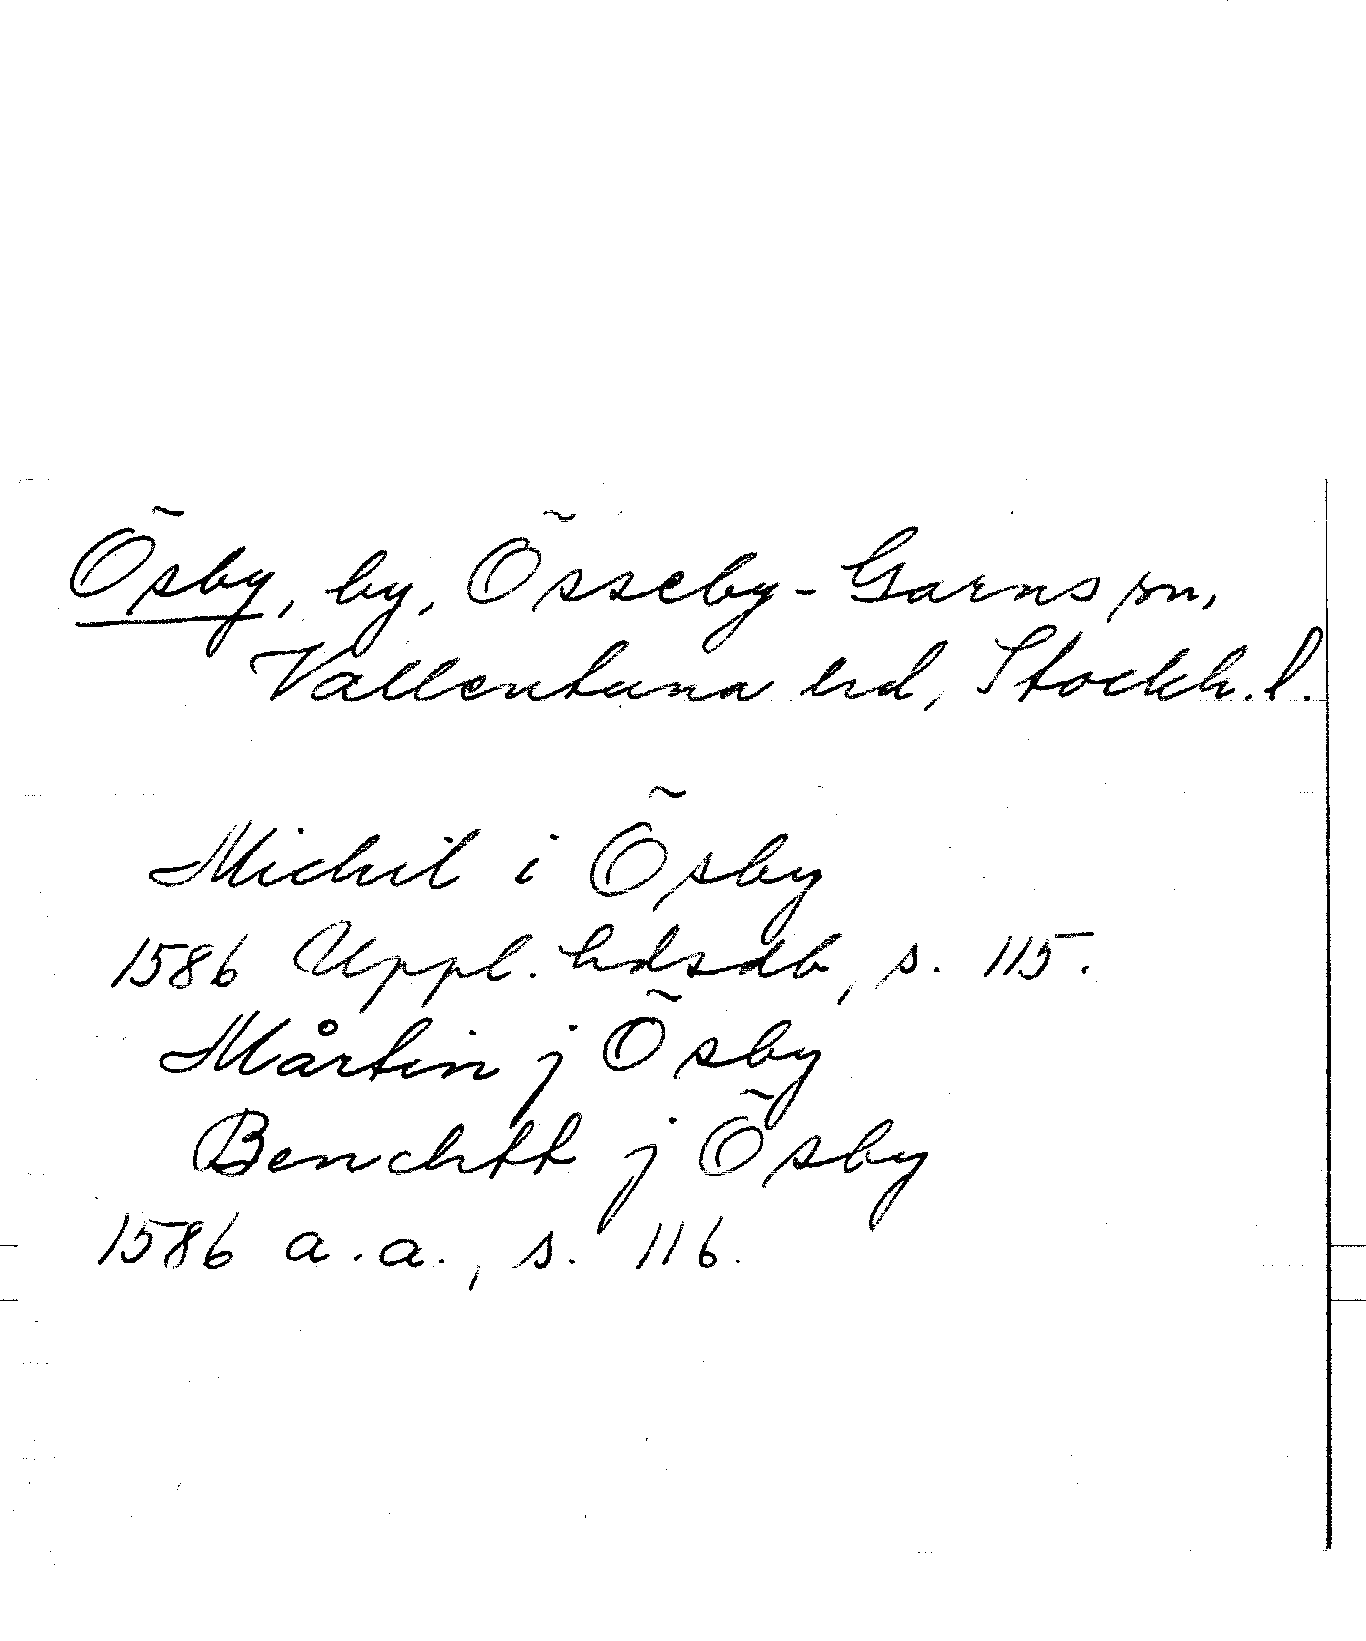 Õsby, by, Össeby-Garns sn,
Vallentuna hd, Stockh. l.
Michil i Õsby
1586 Uppl. hdsdb, s. 115.
Mårtin j Õsby
Benchtt j Õsby
1586 a.a., s. 116.